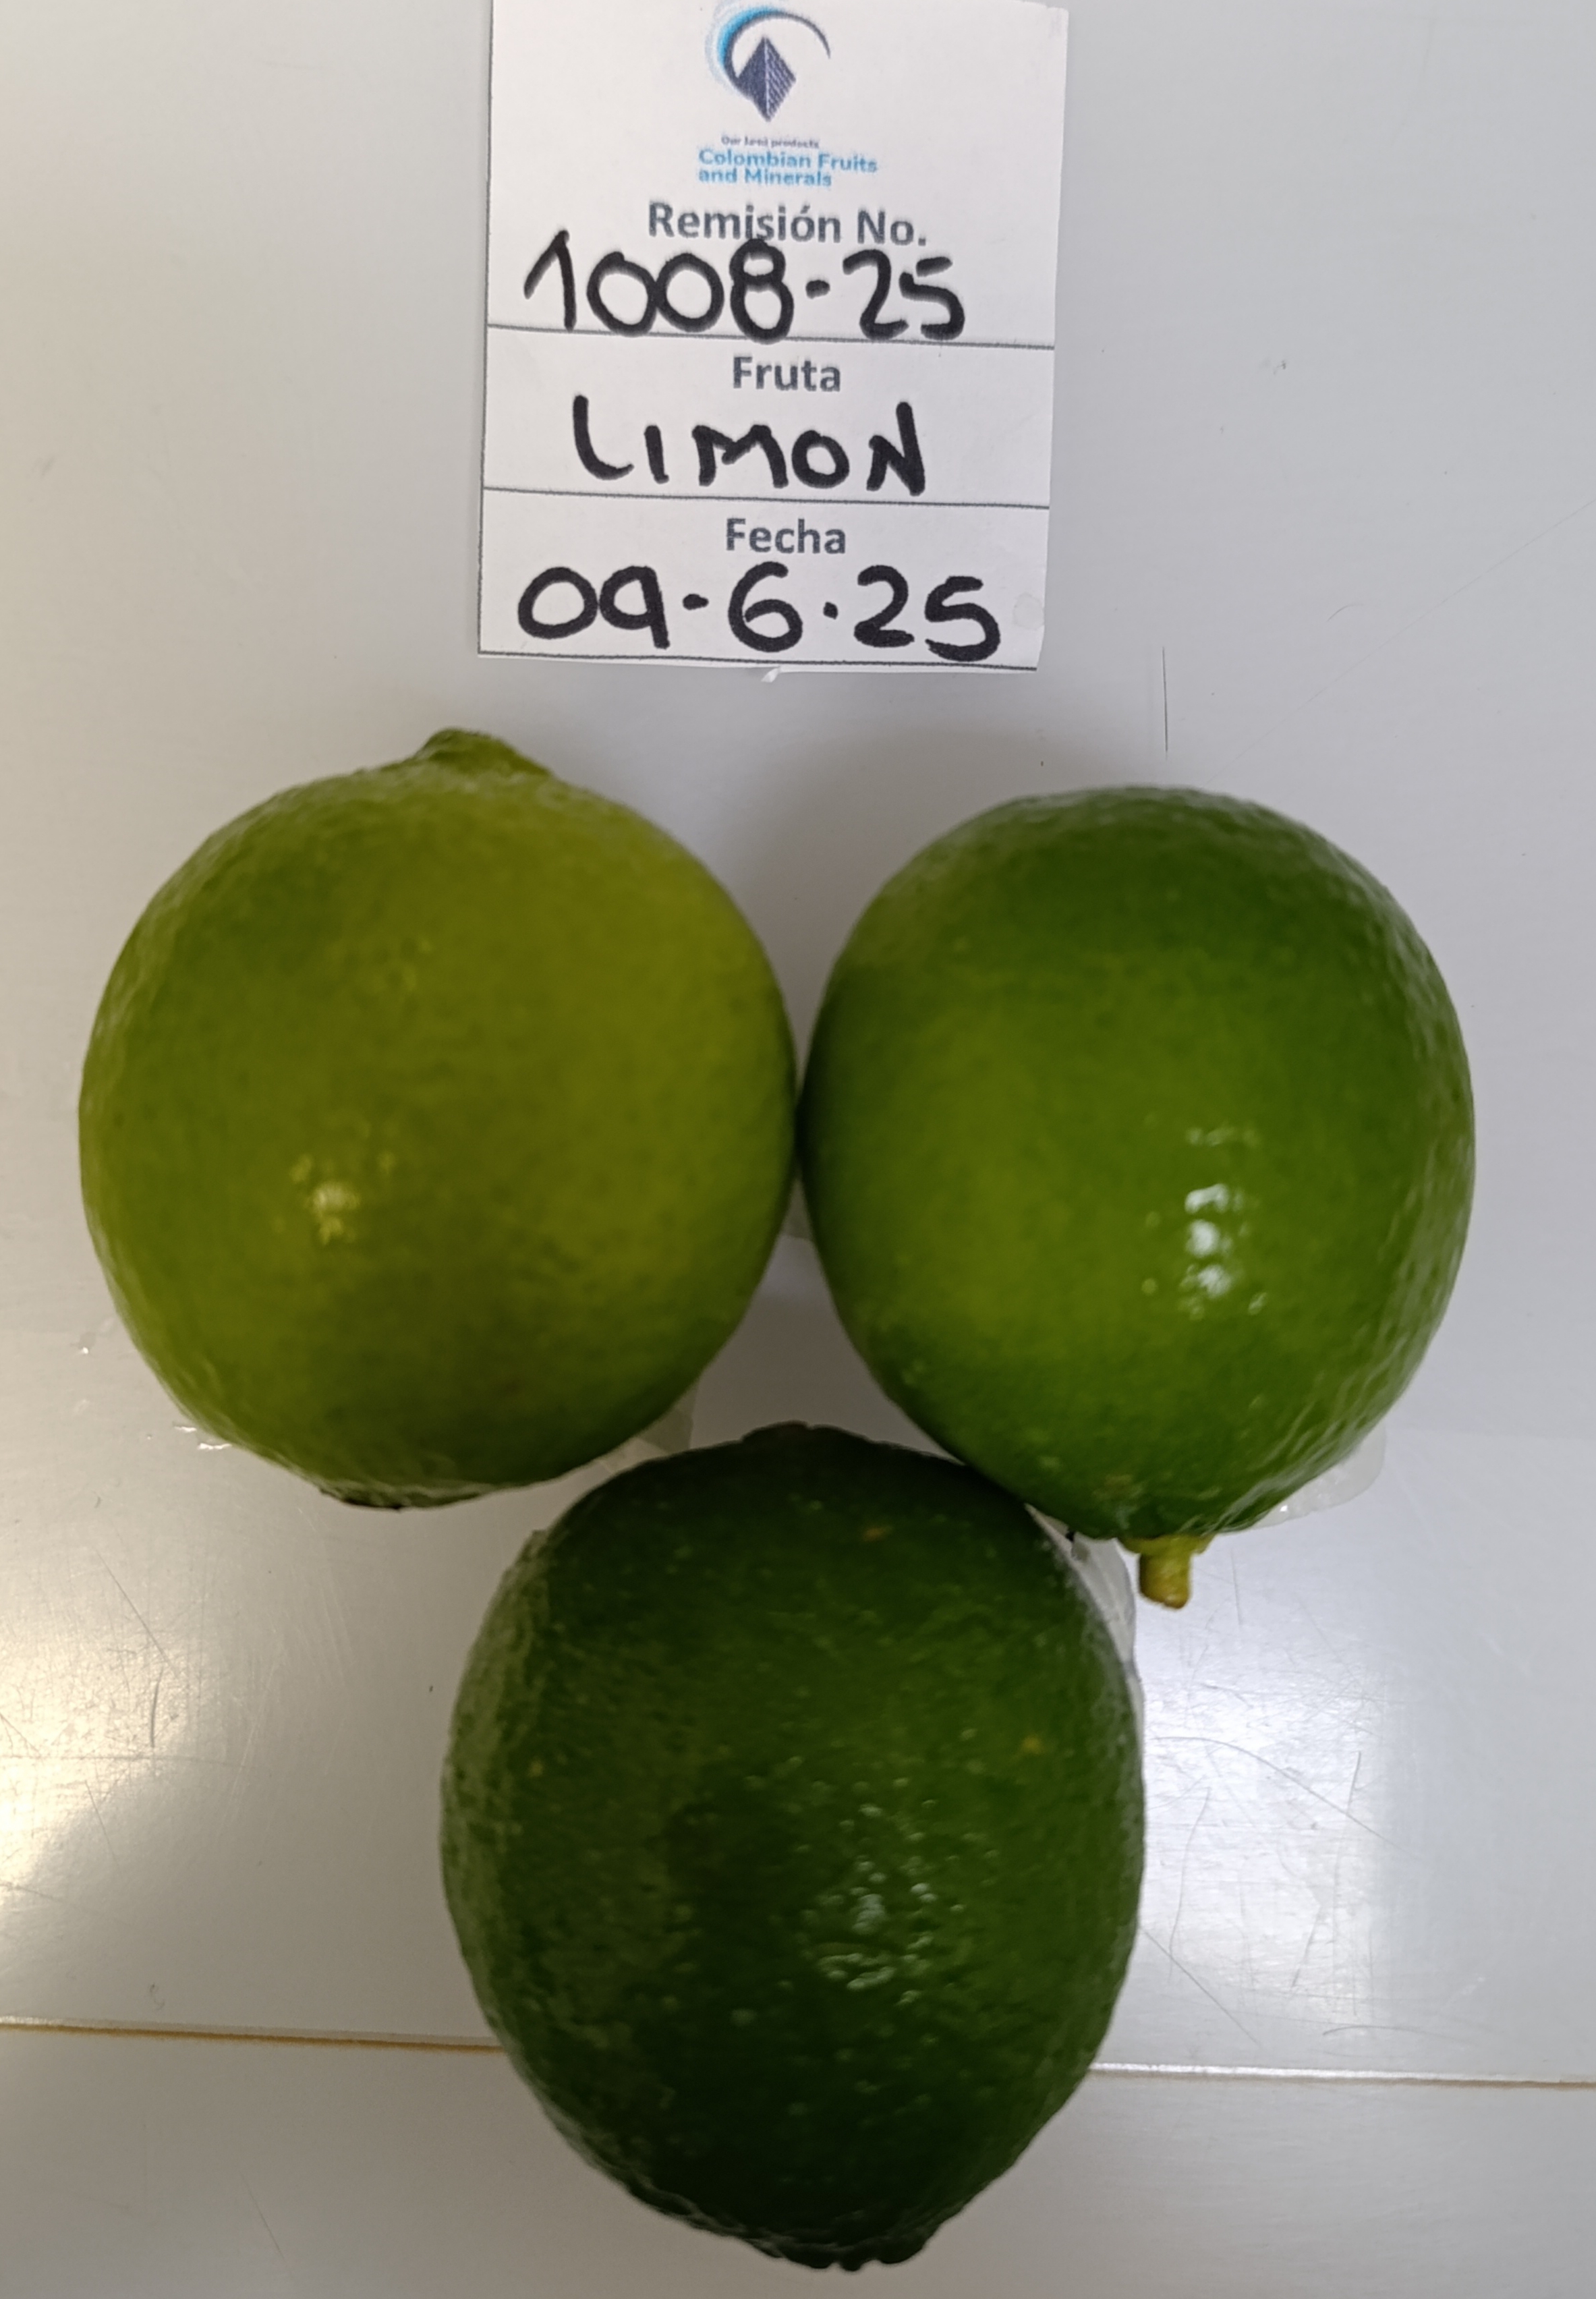 Our land products
Colombian Fruits
and Minerals
Remisión No.
1008-25
Fruta
LIMON
Fecha
09-6-25